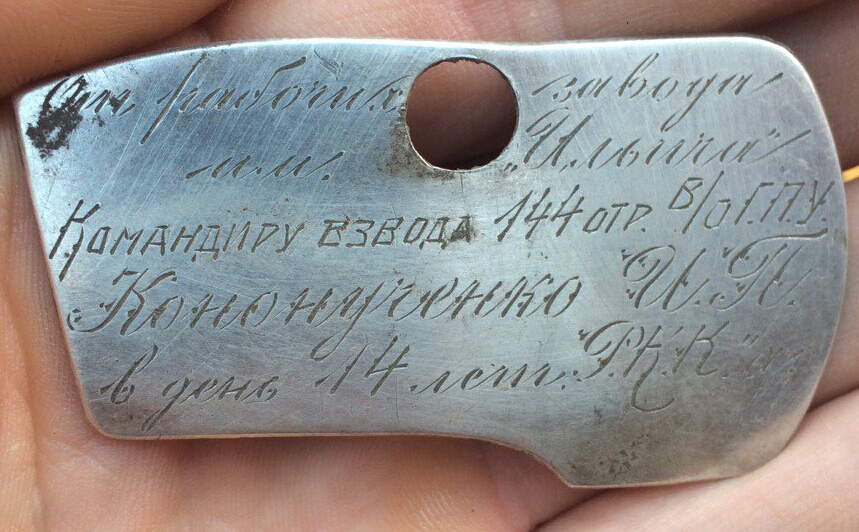 От рабочих завода
им. „Ильича"
Командиру взвода 144 отр. В/О Г.П.У.
Кононученко И.П.
в день 14 лет. Р.К.К. "А.